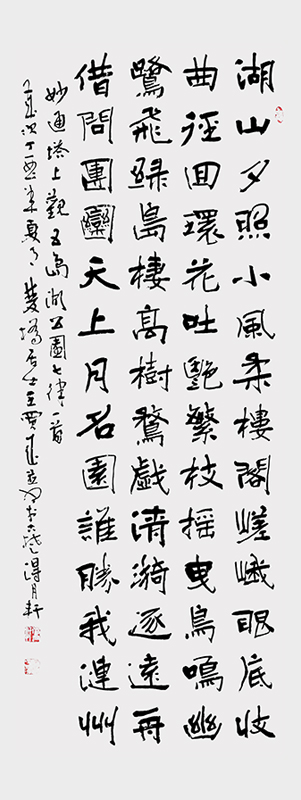 湖山夕照小風柔樓閣嵯峨眼底收
曲徑回環花吐艷繁枝摇曳鳥鳴幽
鷺飛緑島棲高樹鶩戲清漪逐遠舟
借問團圞天上月名園誰勝我漣州
妙通塔上觀五島湖公園七律一首
次丁酉年夏月居士得月軒